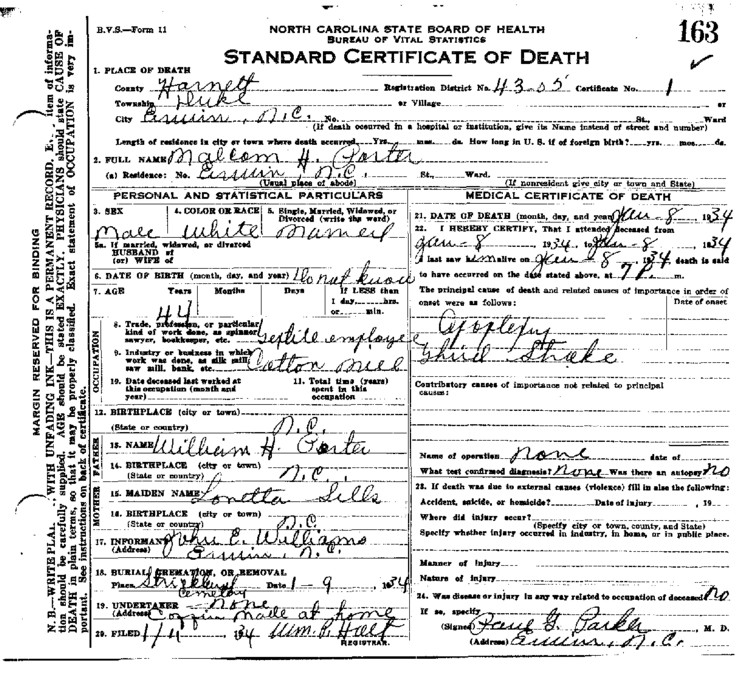 B.V.S.—Form 11
NORTH CAROLINA STATE BOARD OF HEALTH
BUREAU OF VITAL STATISTICS
163
STANDARD CERTIFICATE OF DEATH
1. PLACE OF DEATH
County Harnett Registration District No. 43-05 Certificate No. 1
Township Duke or Village or
City Erwin, N.C. No. St., Ward
(If death occurred in a hospital or institution, give its Name instead of street and number)
Length of residence in city or town where death occurred yrs. mos. ds. How long in U. S. if of foreign birth? yrs. mos. ds.
2. FULL NAME Malcom H. Porter
(a) Residence: No. Erwin, N.C. St., Ward.
(Usual place of abode) (If nonresident give city or town and State)
PERSONAL AND STATISTICAL PARTICULARS
3. SEX Male
4. COLOR OR RACE White
5. Single, Married, Widowed, or Divorced (write the word) Married
5a. If married, widowed, or divorced
HUSBAND of
(or) WIFE of
6. DATE OF BIRTH (month, day, and year) Do not know
7. AGE Years Months Days If LESS than
1 day hrs.
or min.
44
OCCUPATION
8. Trade, profession, or particular
kind of work done, as spinner,
sawyer, bookkeeper, etc. Textile employee
9. Industry or business in which
work was done, as silk mill,
saw mill, bank, etc. Cotton Mill
10. Date deceased last worked at
this occupation (month and
year)
11. Total time (years)
spent in this
occupation
12. BIRTHPLACE (city or town)
(State or country) N.C.
FATHER
13. NAME William H. Porter
14. BIRTHPLACE (city or town)
(State or country) N.C.
MOTHER
15. MAIDEN NAME Loretta Sills
16. BIRTHPLACE (city or town)
(State or country) N.C.
17. INFORMANT John E. Williams
(Address) Erwin, N.C.
18. BURIAL, CREMATION, OR REMOVAL
Place Cemetery Date 1-9 1934
19. UNDERTAKER none
(Address) Coffin made at home
20. FILED 1/11 1934 Wm. P. Holt
REGISTRAR.
MEDICAL CERTIFICATE OF DEATH
21. DATE OF DEATH (month, day, and year) Jan-8, 1934
22. I HEREBY CERTIFY, That I attended deceased from
Jan-8 1934, to Jan-8, 1934
I last saw him alive on Jan-8, 1934 death is said
to have occurred on the date stated above, at 7 P. m.
The principal cause of death and related causes of importance in order of
onset were as follows: Date of onset
Apoplexy
Third Stroke
Contributory causes of importance not related to principal
cause:
Name of operation none date of
What test confirmed diagnosis? None Was there an autopsy No
23. If death was due to external causes (violence) fill in also the following:
Accident, suicide, or homicide? Date of injury , 19
Where did injury occur?
(Specify city or town, county, and State)
Specify whether injury occurred in industry, in home, or in public place.
Manner of injury
Nature of injury
24. Was disease or injury in any way related to occupation of deceased No
If so, specify
(Signed) Parker, M. D.
(Address) Erwin, N.C.
MARGIN RESERVED FOR BINDING
N. B.—WRITE WITH UNFADING INK—THIS IS A PERMANENT RECORD. item of informa-
tion should be carefully supplied. AGE should be stated EXACTLY. PHYSICIANS should state CAUSE OF
DEATH in plain terms, so that it may be properly classified. Exact statement of OCCUPATION is very im-
portant. See instructions on back of certificate.